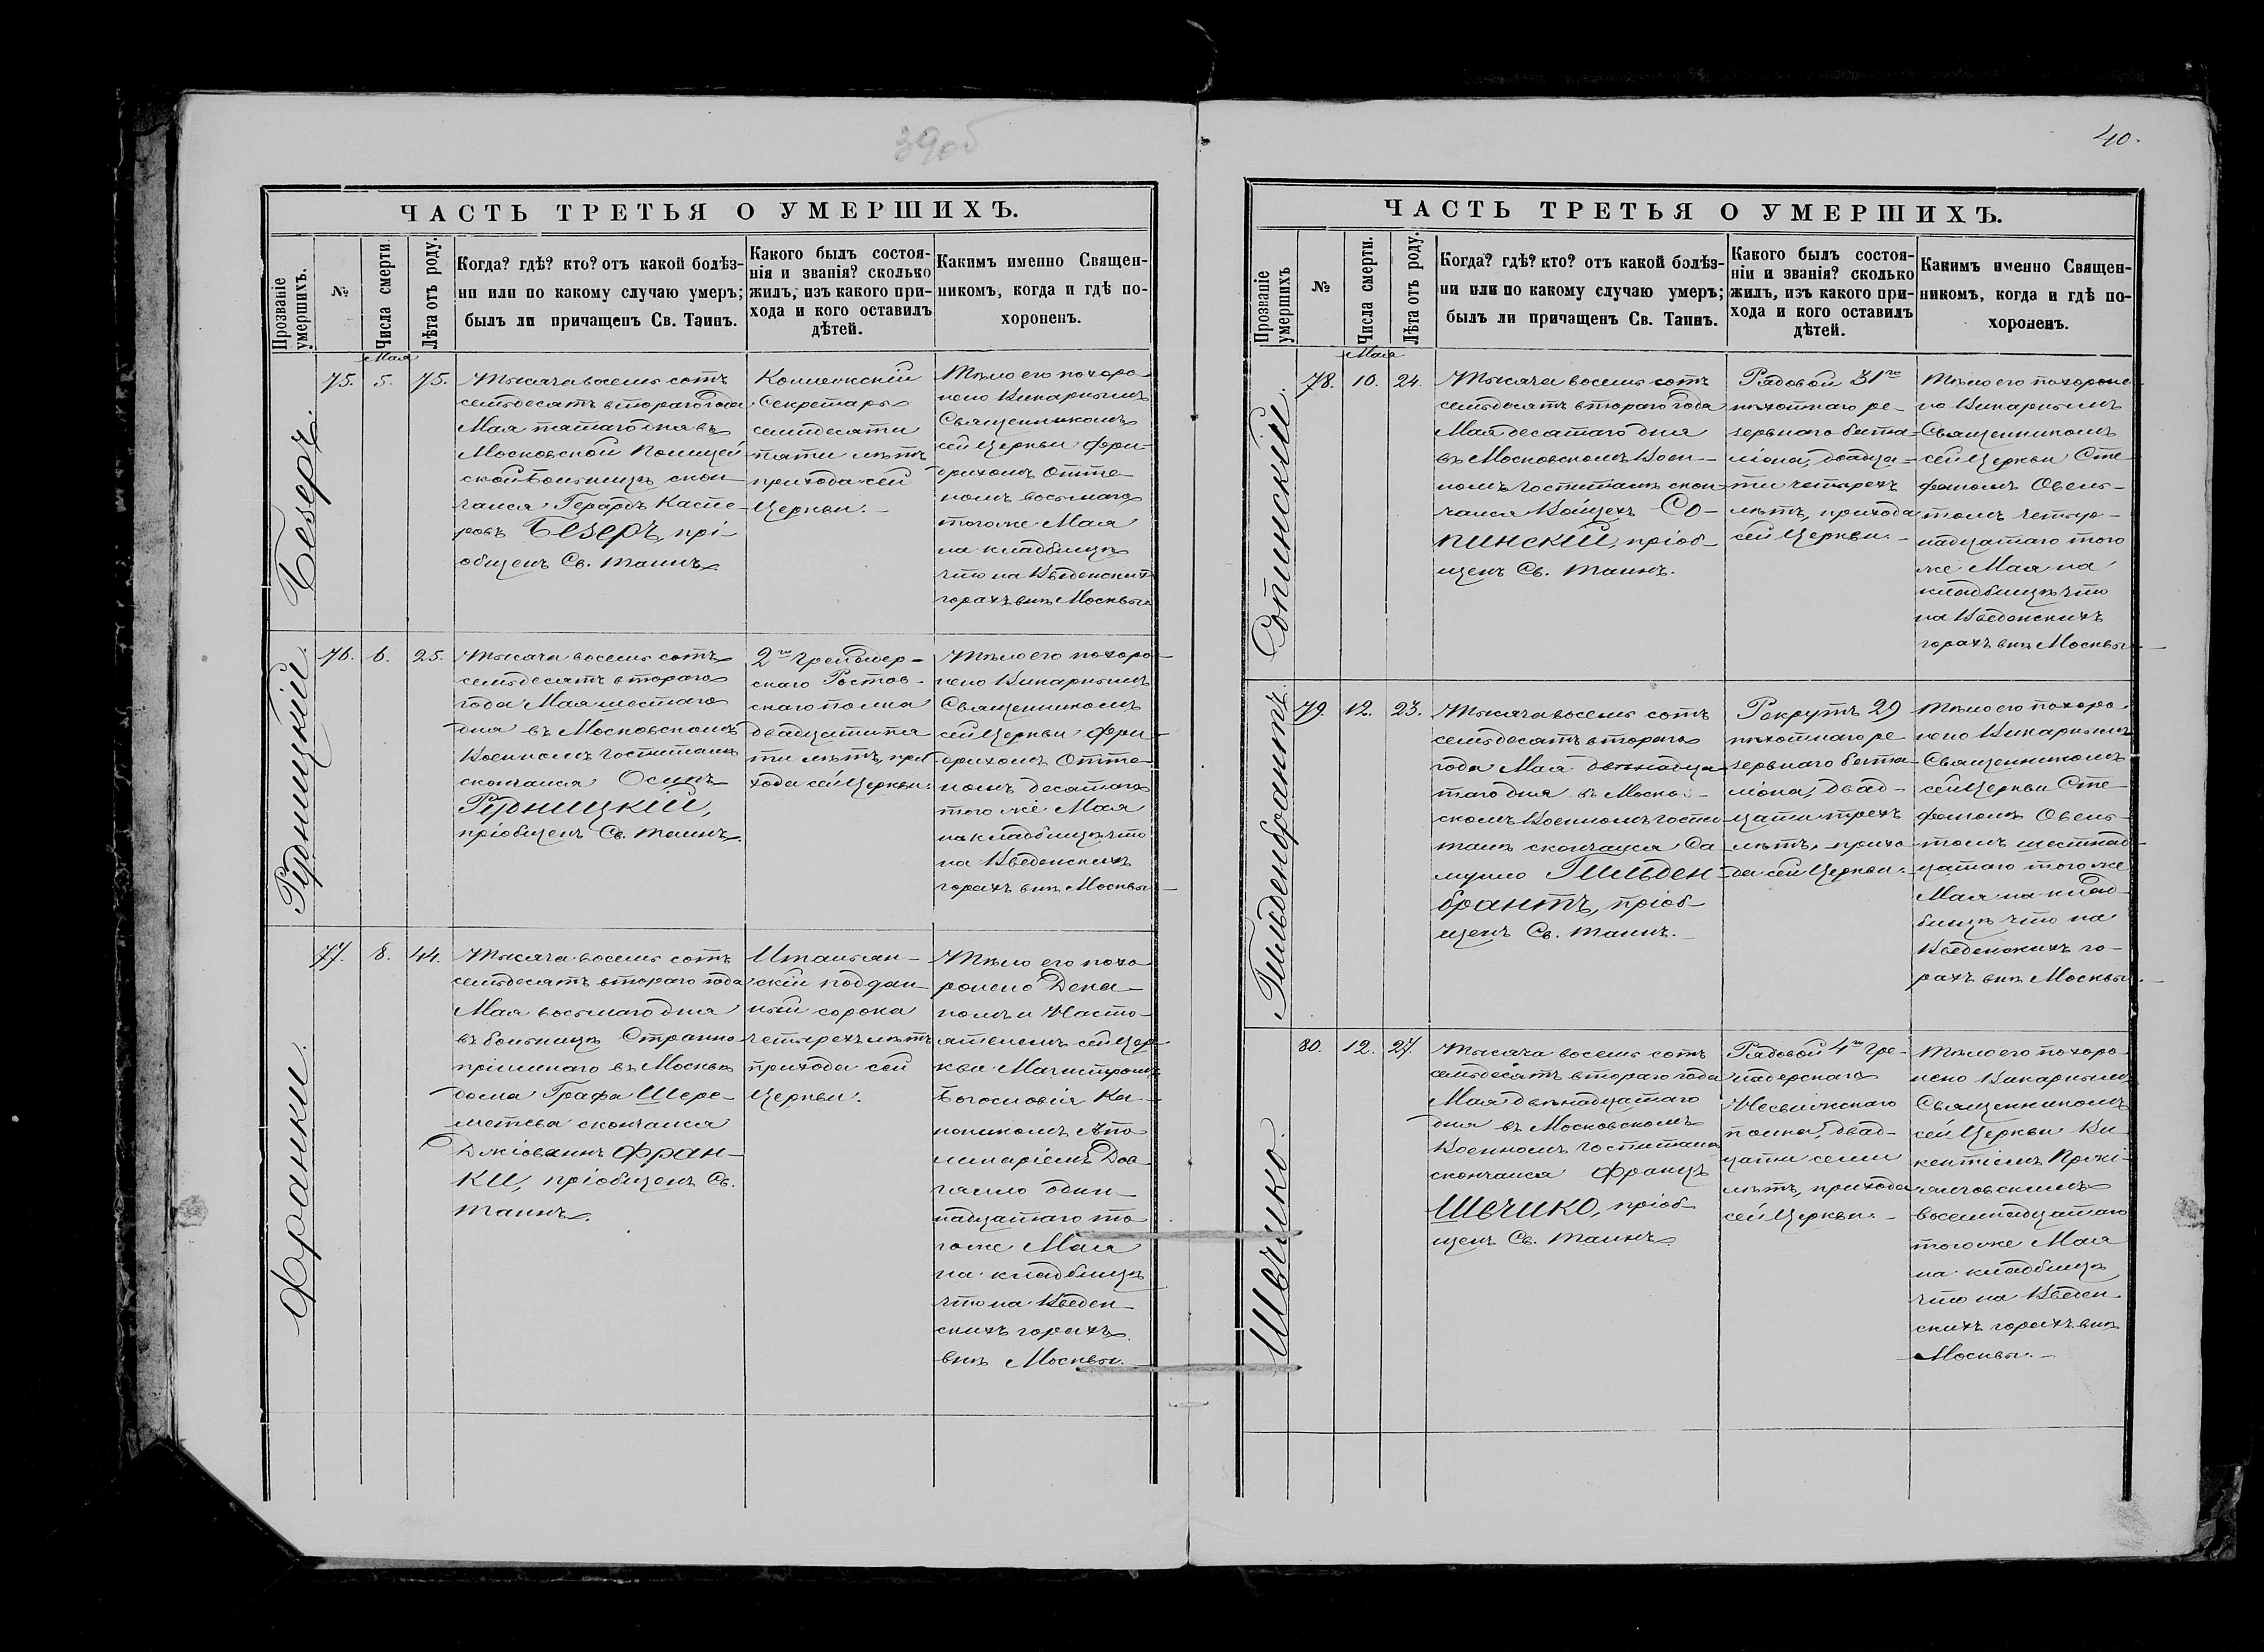 39об
ЧАСТЬ ТРЕТЬЯ О УМЕРШИХЪ.
Прозваніе умершихъ.
№
Числа смерти
Лѣта отъ роду.
Когда? гдѣ? кто? отъ какой болѣз-
ни или по какому случаю умеръ;
былъ ли причащенъ Св. Таинъ.
Какого былъ состоя-
нія и званія? сколько
жилъ, изъ какого при-
хода и кого оставилъ
дѣтей.
Какимъ именно Священ-
никомъ, когда и гдѣ по-
хороненъ.
Мая
Безеръ.
75. 5. 75.
Тысяча восемь сотъ
семьдесятъ втораго года
Мая пятаго дня въ
Московской Полицей
ской Больницѣ скон-
чался Герардъ Каспе-
ровъ Безеръ, прі-
общенъ Св. Таинъ.
Коллежскій
Секретарь
семидесяти
пяти лѣтъ
прихода сей
Церкви.
Тѣло его похоро
нено Викарнымъ
Священникомъ
сей Церкви Фри-
дрихомъ Отте-
номъ восьмаго
того же Мая
на кладбищѣ
что на Введенскихъ
горахъ внѣ Москвы.
Рудницкій.
76. 6. 25.
Тысяча восемь сотъ
семьдесятъ втораго
года Мая шестаго
дня въ Московскомъ
Военномъ Госпиталѣ
скончался Осипъ
Рудницкій,
пріобщенъ Св. Таинъ.
2го Гренадер-
скаго Ростов-
скаго полка
двадцати пя
ти лѣтъ, при
хода сей Церкви.
Тѣло его похоро-
нено Викарнымъ
Священникомъ
сей Церкви Фри-
дрихомъ Отте-
номъ десятаго
того же Мая
на кладбищѣ что
на Введенскихъ
горахъ внѣ Москвы.
Франки.
77. 8. 44.
Тысяча восемь сотъ
семьдесятъ втораго года
Мая восьмаго дня
въ больницѣ Странно
пріимнаго въ Москвѣ
дома Графа Шере-
метева скончался
Джіованнъ Фран-
ки, пріобщенъ Св.
Таинъ.
Итальян-
скій поддан-
ный сорока
четырехъ лѣтъ
прихода сей
Церкви.
Тѣло его похо
ронено Дека-
номъ и Насто-
ятелемъ сей Цер-
кви Магистромъ
Богословія Ка-
ноникомъ Апо
линаріемъ Дов-
гялло один-
надцатаго то
го же Мая
на кладбищѣ
что на Введен-
скихъ горахъ
внѣ Москвы.
40.
ЧАСТЬ ТРЕТЬЯ О УМЕРШИХЪ.
Прозваніе умершихъ
№
Числа смерти.
Лѣта отъ роду.
Когда? гдѣ? кто? отъ какой болѣз-
ни или по какому случаю умеръ;
былъ ли причащенъ Св. Таинъ.
Какого былъ состоя-
ніи и званія? сколько
жилъ, изъ какого при-
хода и кого оставилъ
дѣтей.
Какимъ именно Священ-
никомъ, когда и гдѣ по-
хороненъ.
Мая
Сопинскій.
78. 10. 24.
Тысяча восемь сотъ
семьдесятъ втораго года
Мая десятаго дня
въ Московскомъ Воен-
номъ Госпиталѣ скон-
чался Войцехъ Со-
пинскій, пріоб-
щенъ Св. Таинъ.
Рядовой 31го
пѣхотнаго ре-
зервнаго бата-
ліона, двадца-
ти четырехъ
лѣтъ, прихода
сей Церкви.
Тѣло его похороне
но Викарнымъ
Священникомъ
сей Церкви Сте
фаномъ Овель-
томъ четыр-
надцатаго того
же Мая на
кладбищѣ что
на Введенскихъ
горахъ внѣ Москвы.
Гильденбрантъ.
79. 12. 23.
Тысяча восемь сотъ
семьдесятъ втораго
года Мая двѣнадца
таго дня въ Москов-
скомъ Военномъ Госпи
талѣ скончался Са
муило Гильден-
брантъ, пріоб-
щенъ Св. Таинъ.
Рекрутъ 29
пѣхотнаго ре
зервнаго бата
ліона, двад-
цати трехъ
лѣтъ, прихо
да сей Церкви.
Тѣло его похоро-
нено Викарнымъ
Священникомъ
сей Церкви Сте-
фаномъ Овель-
томъ шестнад-
цатаго того же
Мая на клад-
бищѣ что на
Введенскихъ го-
рахъ внѣ Москвы.
Шечико.
80. 12. 27.
Тысяча восемь сотъ
семьдесятъ втораго года
Мая двѣнадцатаго
дня въ Московскомъ
Военномъ Госпиталѣ
скончался Францъ
Шечико, пріоб-
щенъ Св. Таинъ.
Рядовой 4го Гре-
надерскаго
Несвижскаго
полка, двад-
цати семи
лѣтъ, прихода
сей Церкви.
Тѣло его похоро-
нено Викарнымъ
Священникомъ
сей Церкви Ви-
кентіемъ
восемнадцатаго
того же Мая
на кладбищѣ
что на Введен
скихъ горахъ внѣ
Москвы.